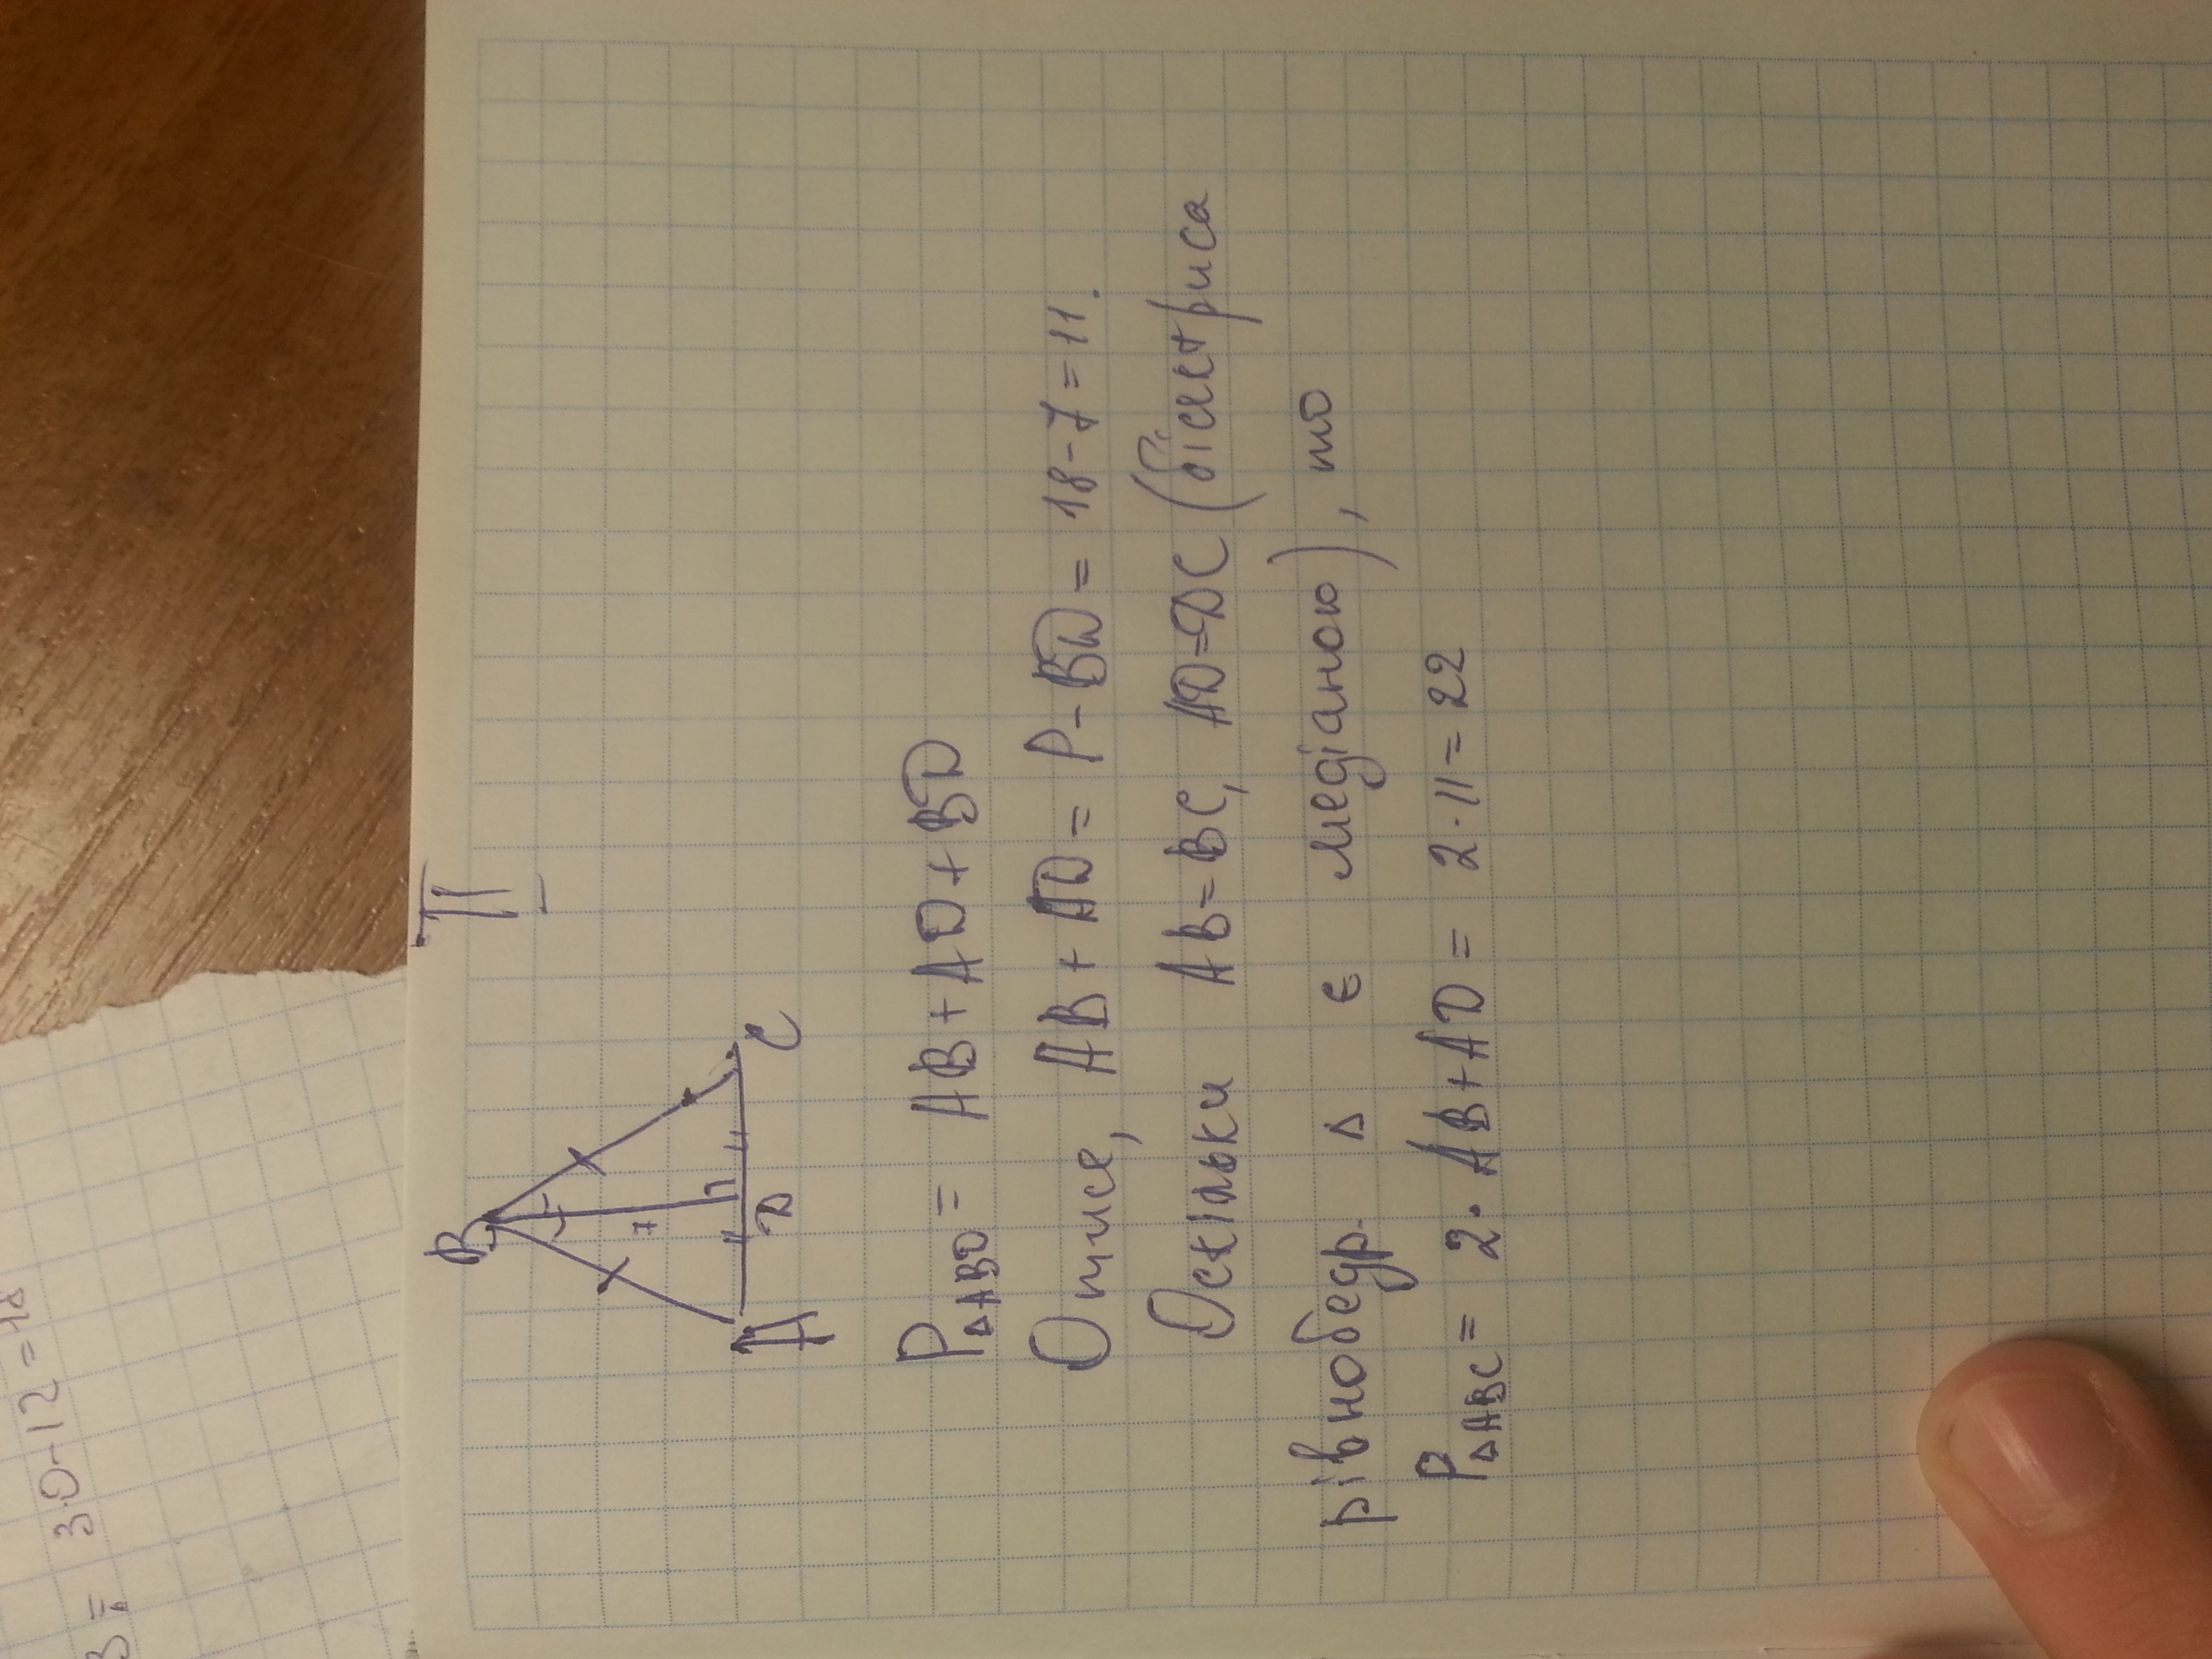 II
B
7
A
D
C
P△ABD = AB + AD + BD
Отже, AB + AD = P - BD = 18 - 7 = 11.
Оскільки AB = BC, AD = DC (бісектриса
рівнобедр. △ є медіаною), то
P△ABC = 2 · AB + AD = 2 · 11 = 22
B = 30+12 = 48